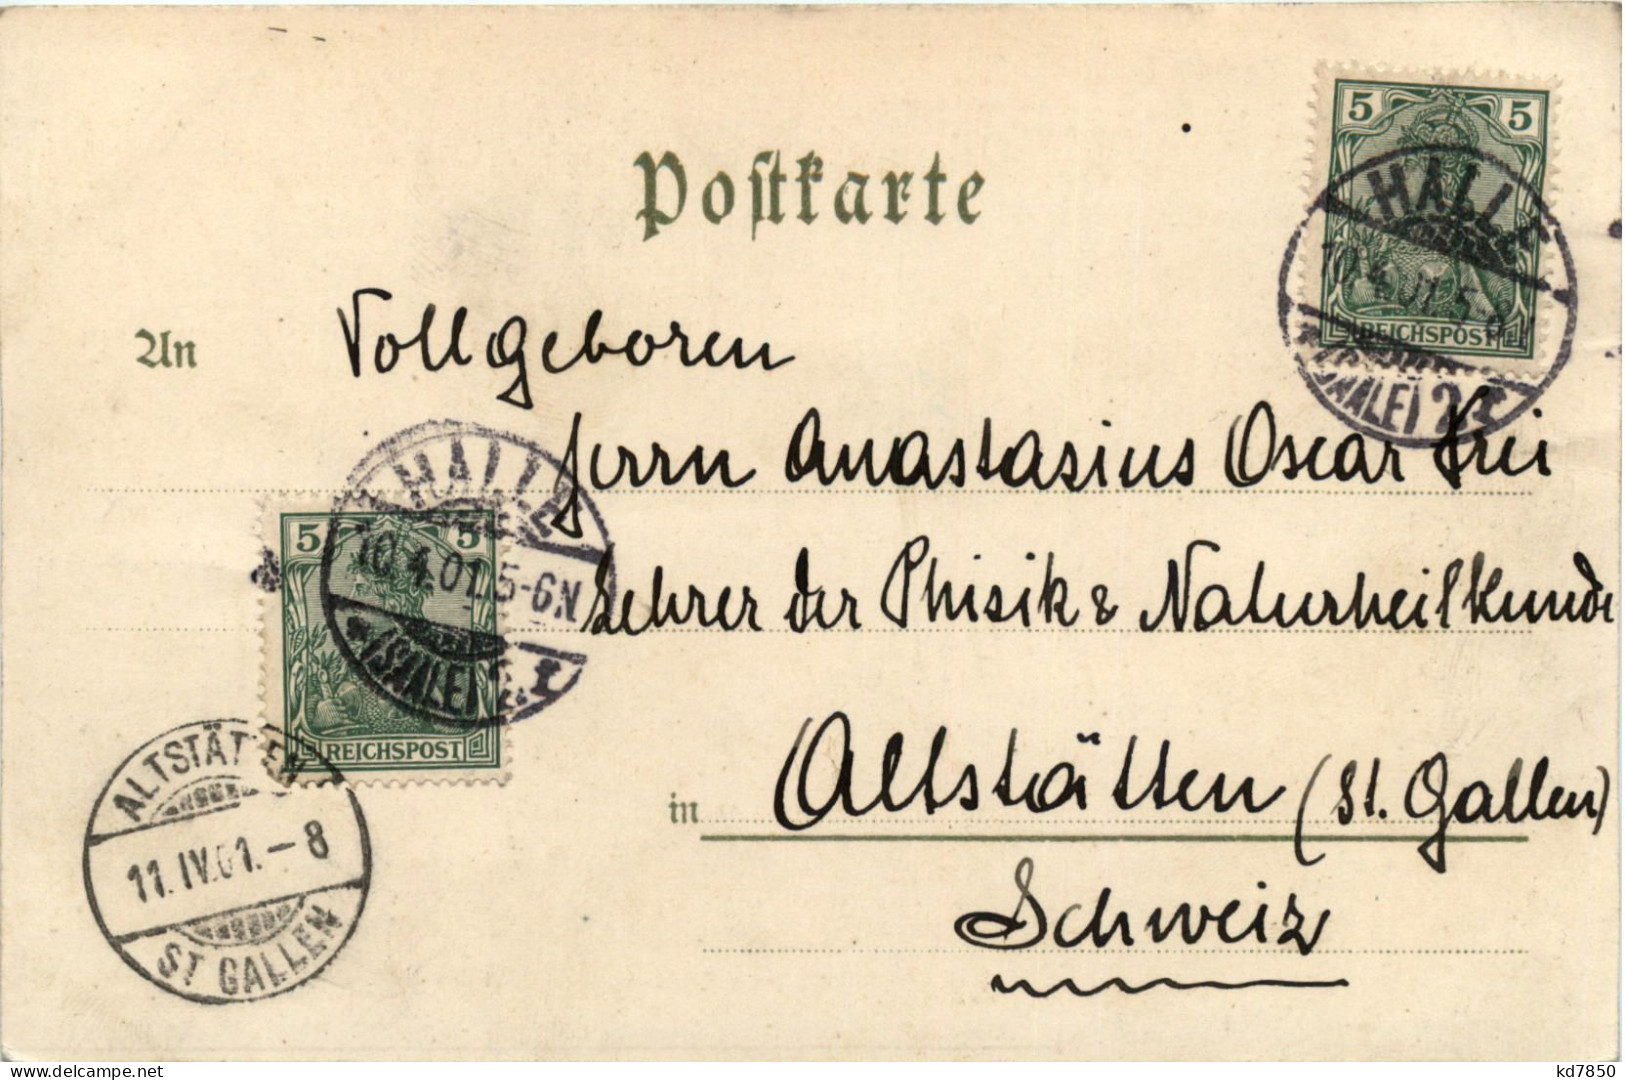 Postkarte
5 5
HALLE
10.4.01.5-
REICHSPOST
(SAALE) 2 r
An Vollgeboren
Herrn Anastasius Oscar Frei
HALLE
5 5
10.4.01.5-6N
(SAALE) 2 r
REICHSPOST
Lehrer der Phisik & Naturheilkunde
ALTSTÄTTEN
11.IV.01.-8
ST GALLEN
in Altstätten (St. Gallen)
Schweiz
delcampe.net
kd7850